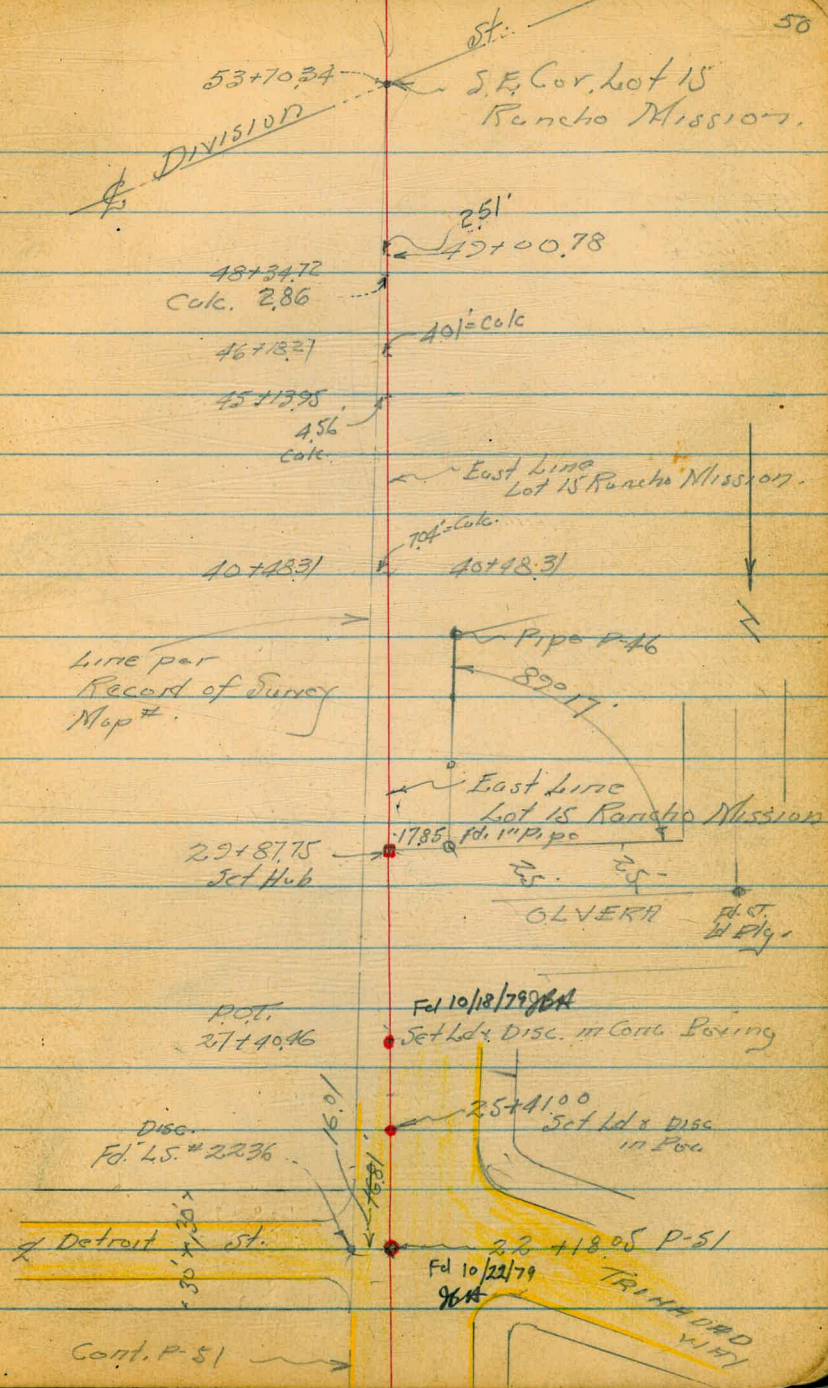 50
St.
53+70.34
S.E. Cor. Lot 15
Rancho Mission.
℄ DIVISION
2.51'
49+00.78
48+34.72
Calc. 2.86
4.01'=Calc
46+18.21
45+13.95
4.56'
Calc.
East Line
Lot 15 Rancho Mission.
7.04'=Calc.
40+48.31
40+48.31
N
Pipe P-46
Line per
Record of Survey
Map #.
89°17'
East Line
Lot 15 Rancho Mission
17.85
Fd. 1" Pipe
29+87.75
Set Hub
25'
25'
OLVERA
Fd. 
Ld Plg.
Fd 10/18/79 JBA
P.O.T.
27+40.46
Set Ld & Disc. in Conc Paving
25+41.00
Set Ld & Disc
in Pav
16.01
Disc.
Fd. L.S. #2236
16.81'
30' + 30'
℄ Detroit St.
22+18.05 P-51
Fd 10/22/79
JBA
TRINADAD
WAY
Cont. P-51